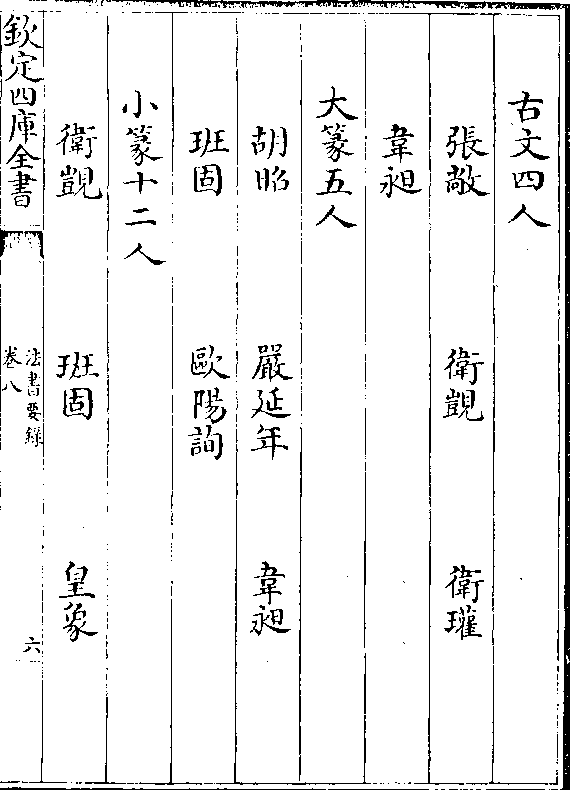 古文四人
張敞 衛覬 衛瓘
韋昶
大篆五人
胡昭 嚴延年 韋昶
班固 歐陽詢
小篆十二人
衛覬 班固 皇象
欽定四庫全書
法書要錄
卷八
六